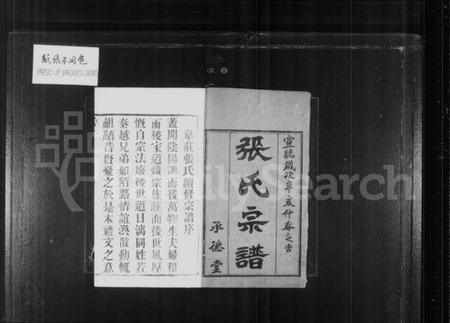 紙張不同色
宣統歲次辛亥仲春之吉
張氏宗譜
承德堂
皐莊張氏續修宗譜序
蓋聞陰陽調而後萬物生夫婦和
而後家道成宗族睦而後世風厚
慨自宗法廢後世道日漓同姓若
秦越兄弟如陌路情誼渙散動輒
齟齬昔賢憂之於是本禮文之意
FamilySearch